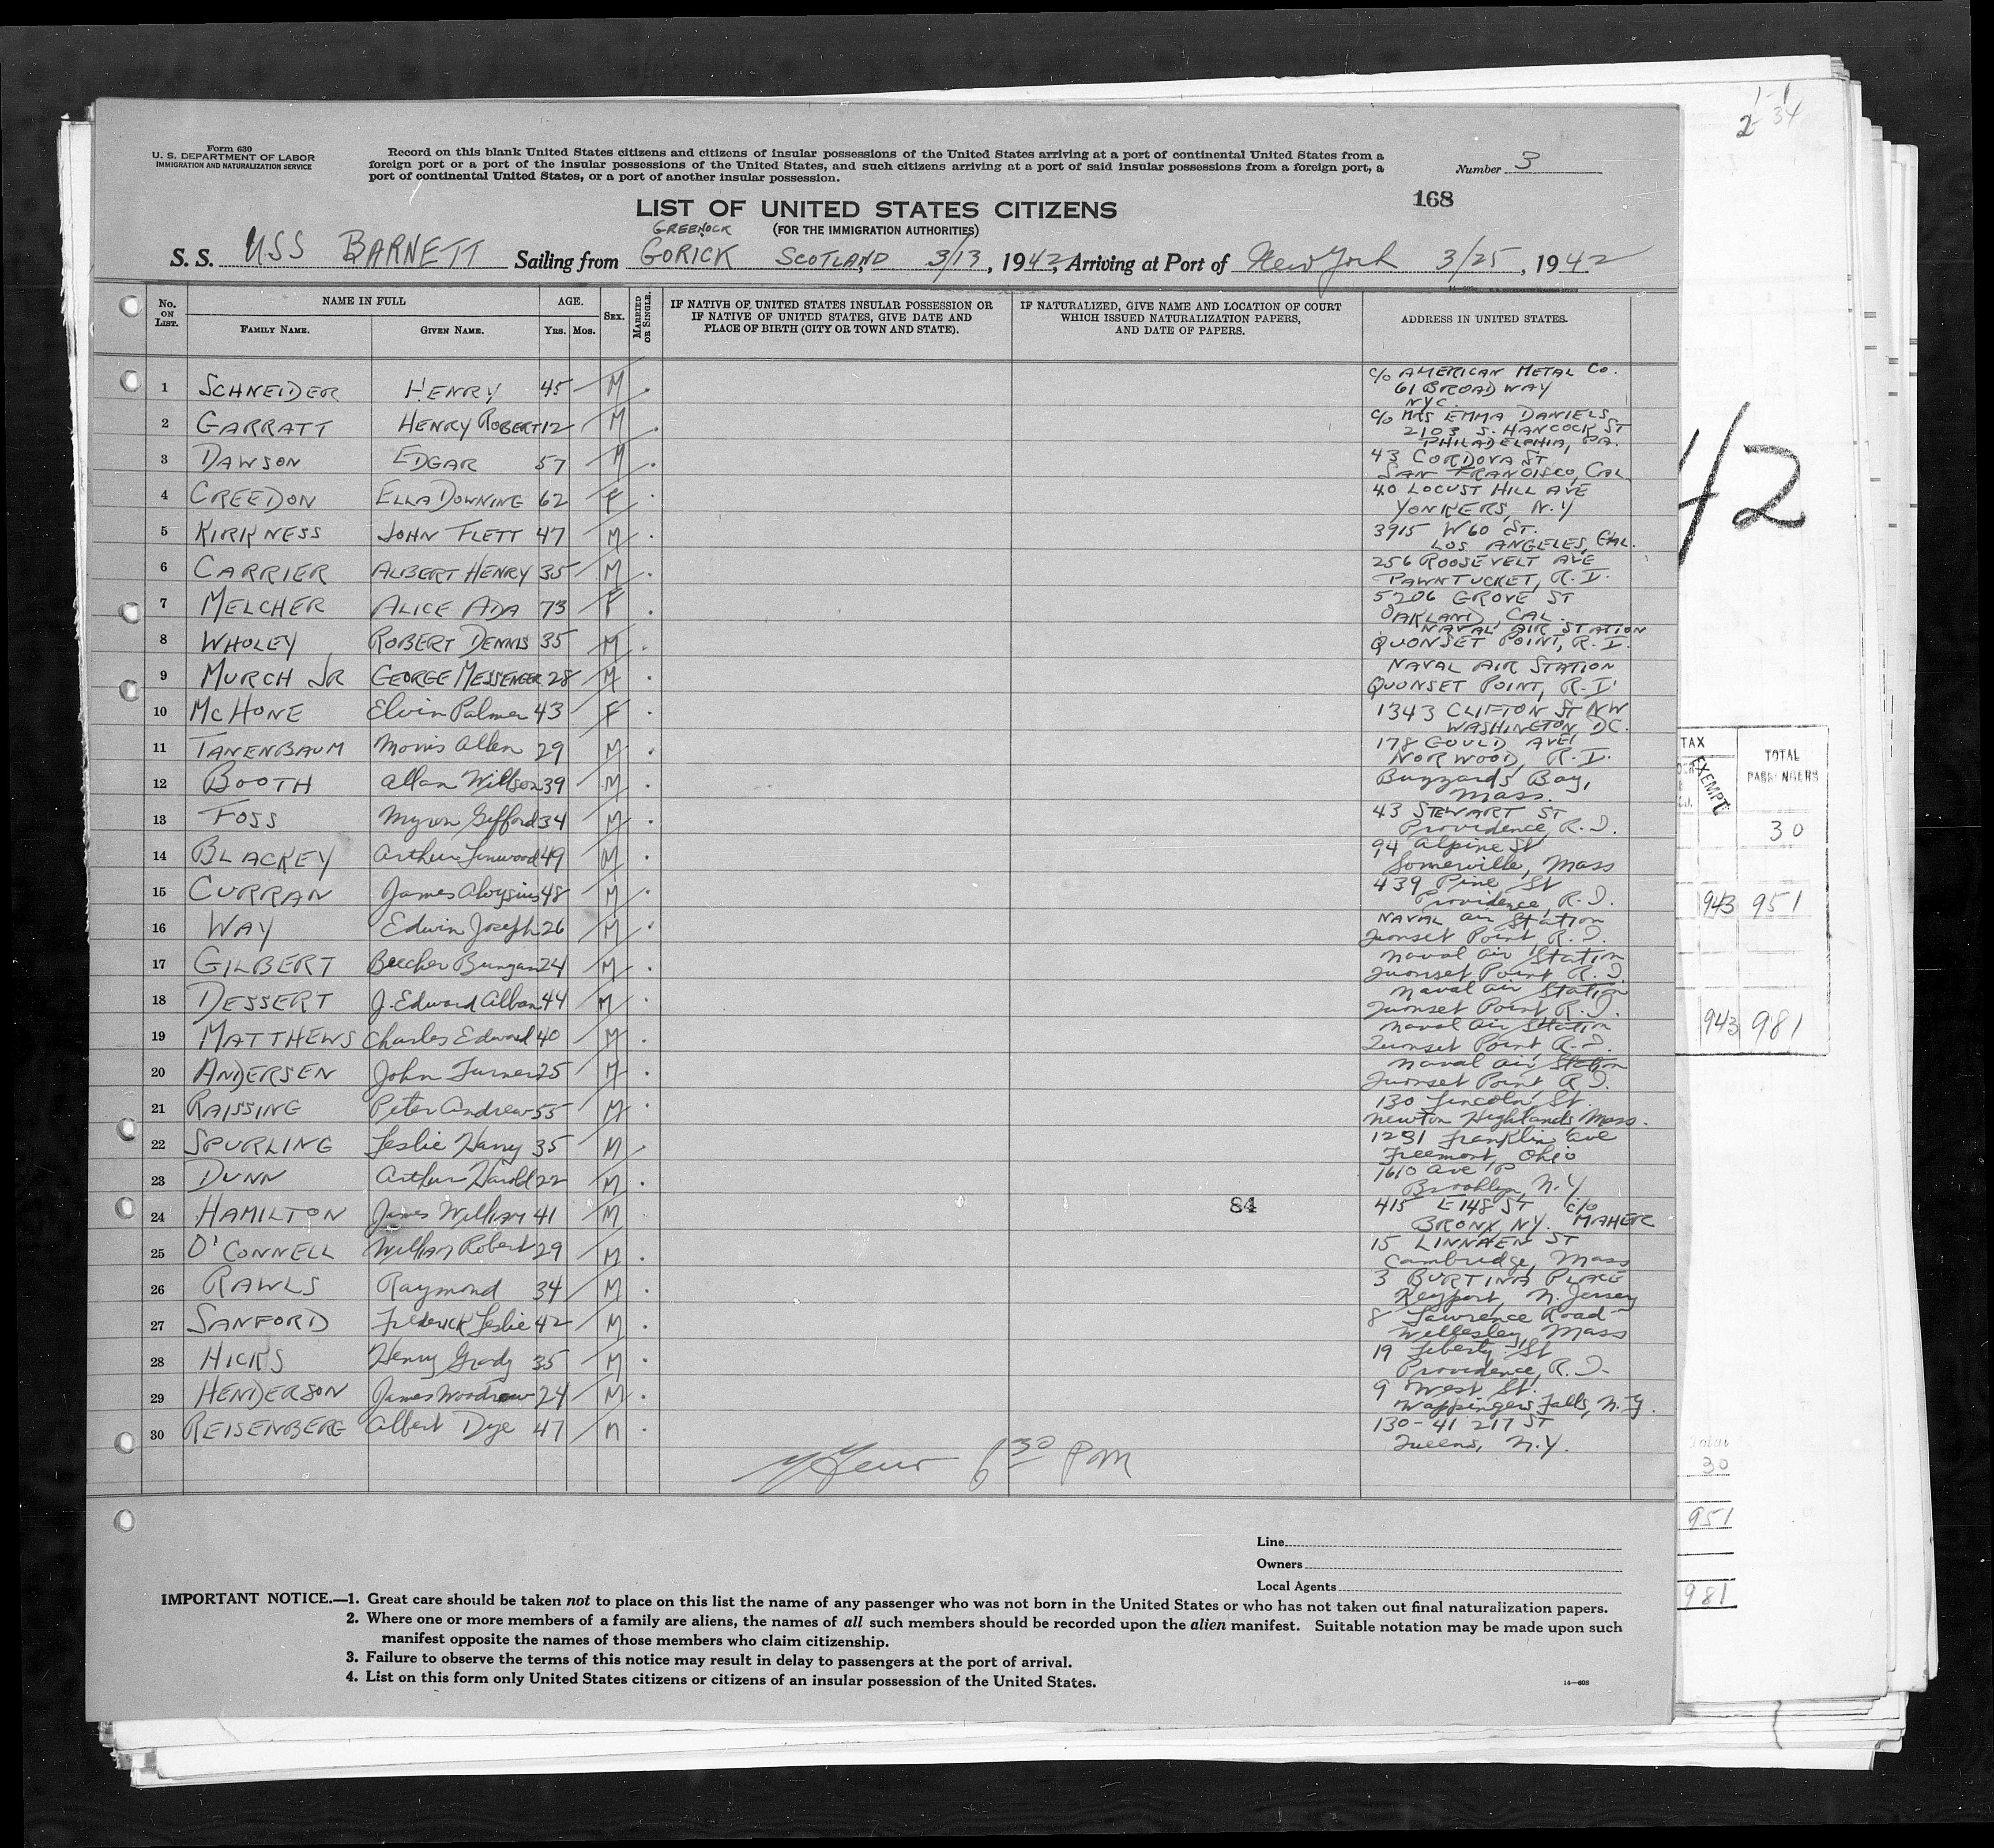 1-1
2-34
Form 630
U. S. DEPARTMENT OF LABOR
IMMIGRATION AND NATURALIZATION SERVICE
Record on this blank United States citizens and citizens of insular possessions of the United States arriving at a port of continental United States from a
foreign port or a port of the insular possessions of the United States, and such citizens arriving at a port of said insular possessions from a foreign port, a
port of continental United States, or a port of another insular possession.
Number 3
168
LIST OF UNITED STATES CITIZENS
(FOR THE IMMIGRATION AUTHORITIES)
GREENOCK
S. S. USS BARNETT Sailing from GORICK SCOTLAND 3/13, 1942, Arriving at Port of New York 3/25, 1942
No. ON LIST. NAME IN FULL AGE. SEX. MARRIED OR SINGLE. IF NATIVE OF UNITED STATES INSULAR POSSESSION OR IF NATIVE OF UNITED STATES, GIVE DATE AND PLACE OF BIRTH (CITY OR TOWN AND STATE). IF NATURALIZED, GIVE NAME AND LOCATION OF COURT WHICH ISSUED NATURALIZATION PAPERS, AND DATE OF PAPERS. ADDRESS IN UNITED STATES.
FAMILY NAME. GIVEN NAME. YRS. MOS.
1 SCHNEIDER HENRY 45 M C/O AMERICAN METAL CO. 61 BROADWAY NYC.
2 GARRATT HENRY ROBERT 12 M C/O MRS EMMA DANIELS 2103 S. HANCOCK ST PHILADELPHIA, PA.
3 DAWSON EDGAR 57 M 43 CORDOVA ST SAN FRANCISCO, CAL
4 CREEDON ELLA DOWNING 62 F 40 LOCUST HILL AVE YONKERS, N.Y
5 KIRKNESS JOHN FLETT 47 M 3915 W 60 ST. LOS ANGELES, CAL.
6 CARRIER ALBERT HENRY 35 M 256 ROOSEVELT AVE PAWNTUCKET, R.I.
7 MELCHER ALICE ADA 73 F 5206 GROVE ST OAKLAND, CAL.
8 WHOLEY ROBERT DENNIS 35 M NAVAL AIR STATION QUONSET POINT, R.I.
9 MURCH JR GEORGE MESSENGER 28 M NAVAL AIR STATION QUONSET POINT, R.I.
10 McHONE Elvin Palmer 43 F 1343 CLIFTON ST NW WASHINGTON, DC.
11 TANENBAUM Morris Allen 29 M 178 GOULD AVE, NORWOOD, R.I.
12 BOOTH Allan Willson 39 M Buzzards Bay, Mass.
13 FOSS Myron Gifford 34 M 43 STEWART ST Providence, R.I.
14 BLACKEY Arthur Linwood 49 M 94 Alpine St Somerville, Mass
15 CURRAN James Aloysius 48 M 439 Pine St Providence, R.I.
16 WAY Edwin Joseph 26 M NAVAL Air Station Quonset Point, R.I.
17 GILBERT Beecher Bunyan 24 M Naval Air Station Quonset Point R.I.
18 DESSERT J. Edward Alban 44 M Naval Air Station Quonset Point R.I.
19 MATTHEWS Charles Edward 40 M Naval Air Station Quonset Point R.I.
20 ANDERSEN John Turner 25 M Naval Air Station Quonset Point R.I.
21 RAISSING Peter Andrew 55 M 130 Lincoln St. Newton Highlands Mass.
22 SPURLING Leslie Harry 35 M 1231 Franklin Ave Freemont, Ohio
23 DUNN Arthur Harold 22 M 1610 Ave P Brooklyn, N.Y
24 HAMILTON James William 41 M 84 415 E 148 ST C/O MAHER BRONX NY.
25 O'CONNELL William Robert 29 M 15 LINNAEN ST Cambridge, Mass
26 RAWLS Raymond 34 M 3 BURTINA PLACE Keyport, N. Jersey
27 SANFORD Frederick Leslie 42 M 8 Lawrence Road Wellesley, Mass
28 HICKS Henry Grady 35 M 19 Liberty St Providence, R.I.
29 HENDERSON James Woodrow 24 M 9 West St. Wappingers Falls, N.Y.
30 REISENBERG Albert Dye 47 M 130-41 217 ST Queens, N.Y.
6 30 PM
Line
Owners
Local Agents
IMPORTANT NOTICE.—1. Great care should be taken not to place on this list the name of any passenger who was not born in the United States or who has not taken out final naturalization papers.
2. Where one or more members of a family are aliens, the names of all such members should be recorded upon the alien manifest. Suitable notation may be made upon such
manifest opposite the names of those members who claim citizenship.
3. Failure to observe the terms of this notice may result in delay to passengers at the port of arrival.
4. List on this form only United States citizens or citizens of an insular possession of the United States.
14—608
42
TAX
EXEMPT
TOTAL
PASSENGERS
30
943 951
943 981
Total
30
951
981